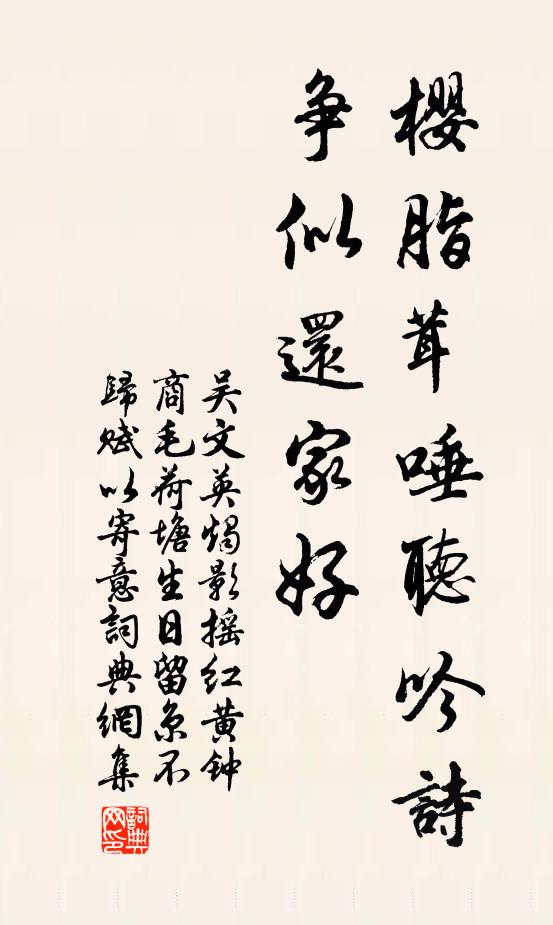 櫻脂茸唾聽吟詩
爭似還家好
吴文英燭影摇红黄钟
商毛荷塘生日留京不
歸赋以寄意詞典網集
詞典
网印